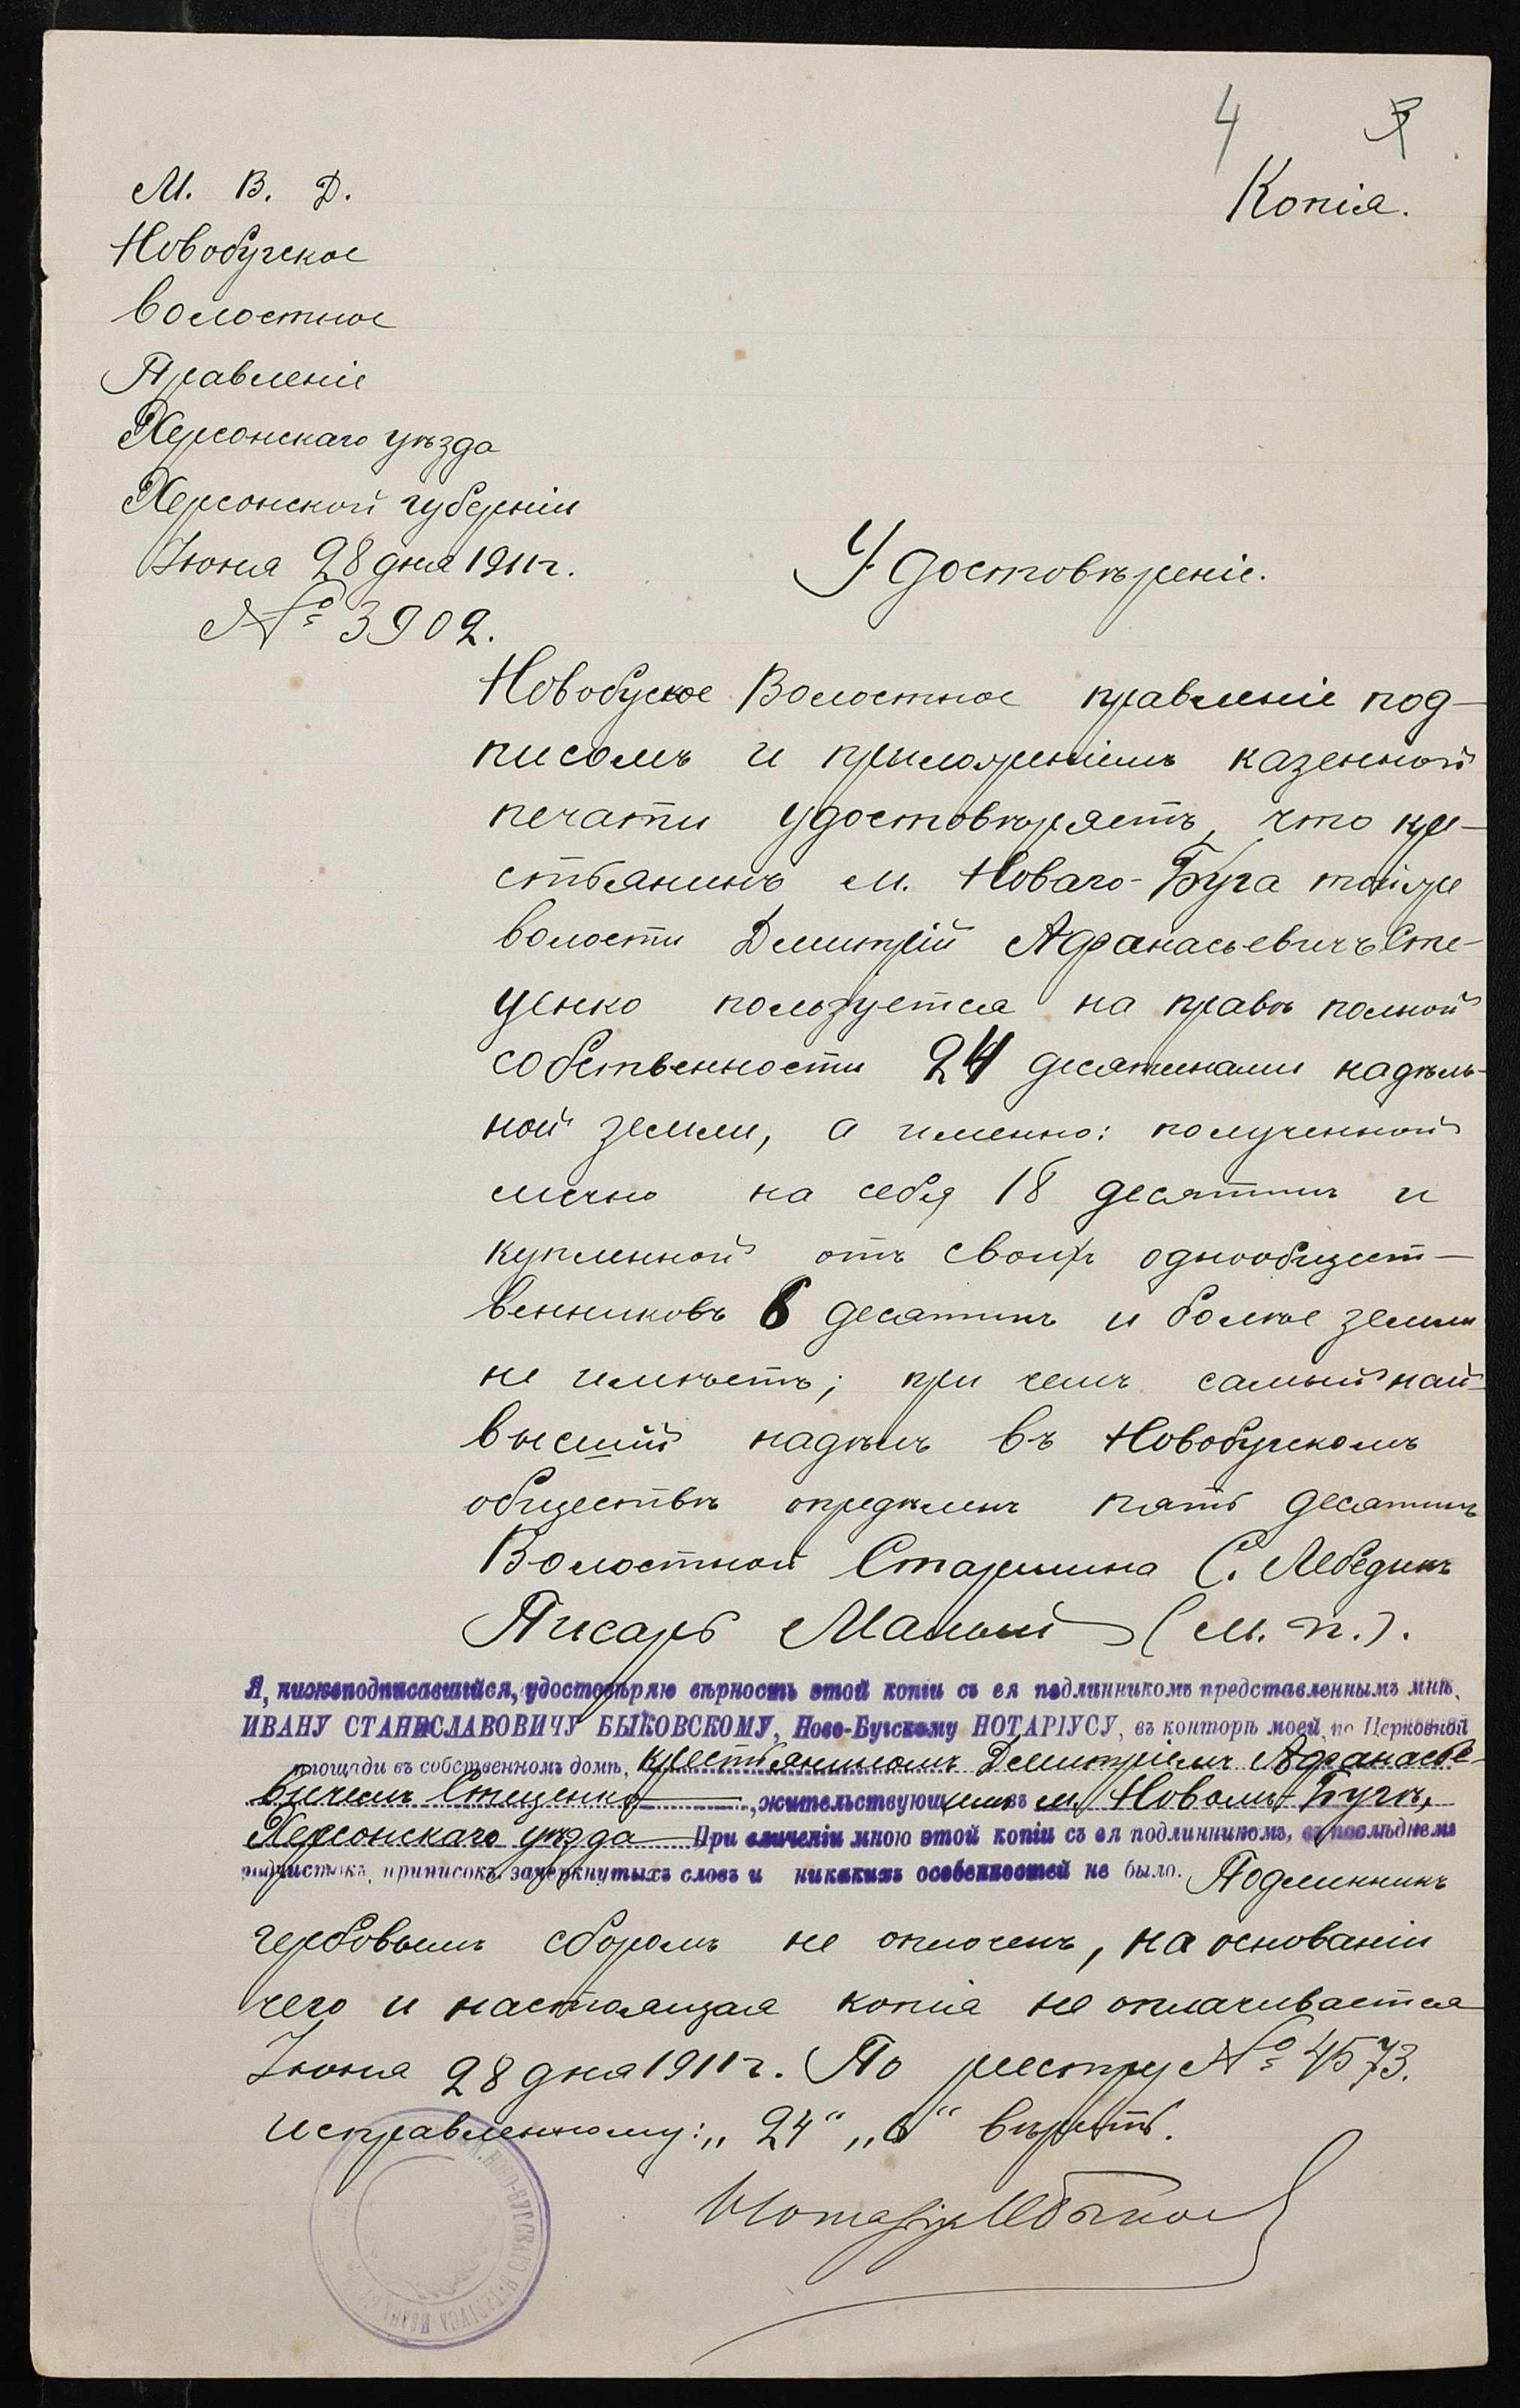 4
Копія.
М. В. Д.
Новобугское
Волостное
Правленіе
Херсонскаго уѣзда
Херсонской губерніи
Іюня 28 дня 1911 г.
№ 3902.
Удостовѣреніе.
Новобугское Волостное правленіе под-
писомъ и приложеніемъ казенной
печати удостовѣряетъ, что кре-
стьянинъ м. Новаго-Буга той же
волости Дмитрій Афанасьевичъ Сте-
ценко пользуется на правѣ полной
собственности 24 десятинами надѣль-
ной земли, а именно: полученной
лично на себя 18 десятинъ и
купленной отъ своихъ однообщест-
венниковъ 6 десятинъ и болѣе земли
не имѣетъ; при чемъ самый най-
высшій надѣлъ въ Новобугскомъ
обществѣ опредѣленъ пять десятинъ
Волостной Старшина С. Лебединъ
Писарь Малый (м. п.).
Я, нижеподписавшійся, удостовѣряю вѣрность этой копіи съ ея подлинникомъ представленнымъ мнѣ,
ИВАНУ СТАНИСЛАВОВИЧУ БЫКОВСКОМУ, Ново-Бугскому НОТАРІУСУ, въ конторѣ моей, по Церковной
площади въ собственномъ домѣ, крестьяниномъ Дмитріемъ Афанасье-
вичемъ Стеценко, жительствующимъ въ м. Новомъ Бугѣ,
Херсонскаго уѣзда При сличеніи мною этой копіи съ ея подлинникомъ, въ послѣднемъ
подчистокъ, приписокъ, зачеркнутыхъ словъ и никакихъ особенностей не было. Подлинникъ
гербовымъ сборомъ не оплоченъ, на основаніи
чего и настоящая копія не оплачивается
Іюня 28 дня 1911 г. По реестру № 4573.
Исправленному: „24“ „6“ вѣрить.
Нотаріус